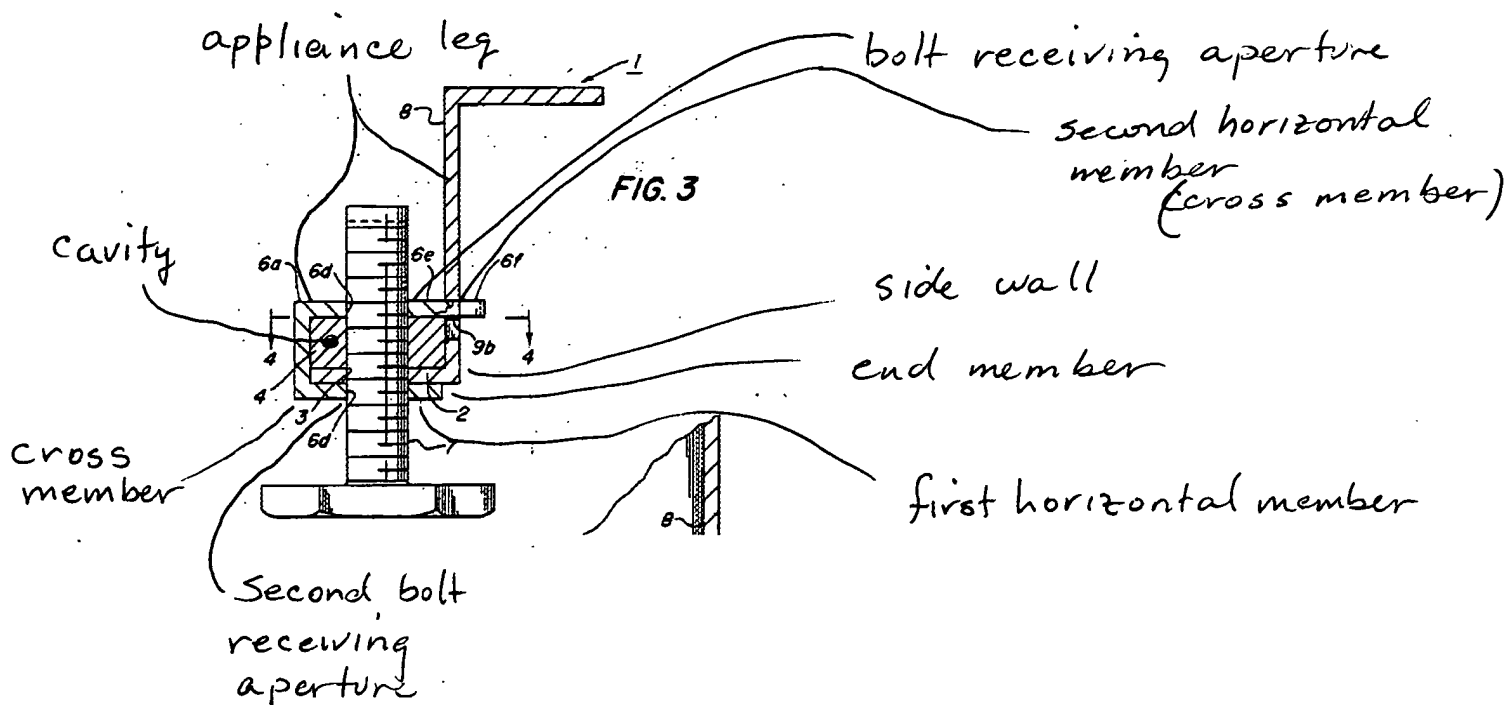 appliance leg
bolt receiving aperture
1
8
second horizontal
member
(cross member)
FIG. 3
cavity
6a
6d
6e
6f
side wall
4
9b
4
end member
4
3
6d
2
7
cross
member
first horizontal member
8
Second bolt
receiving
aperture